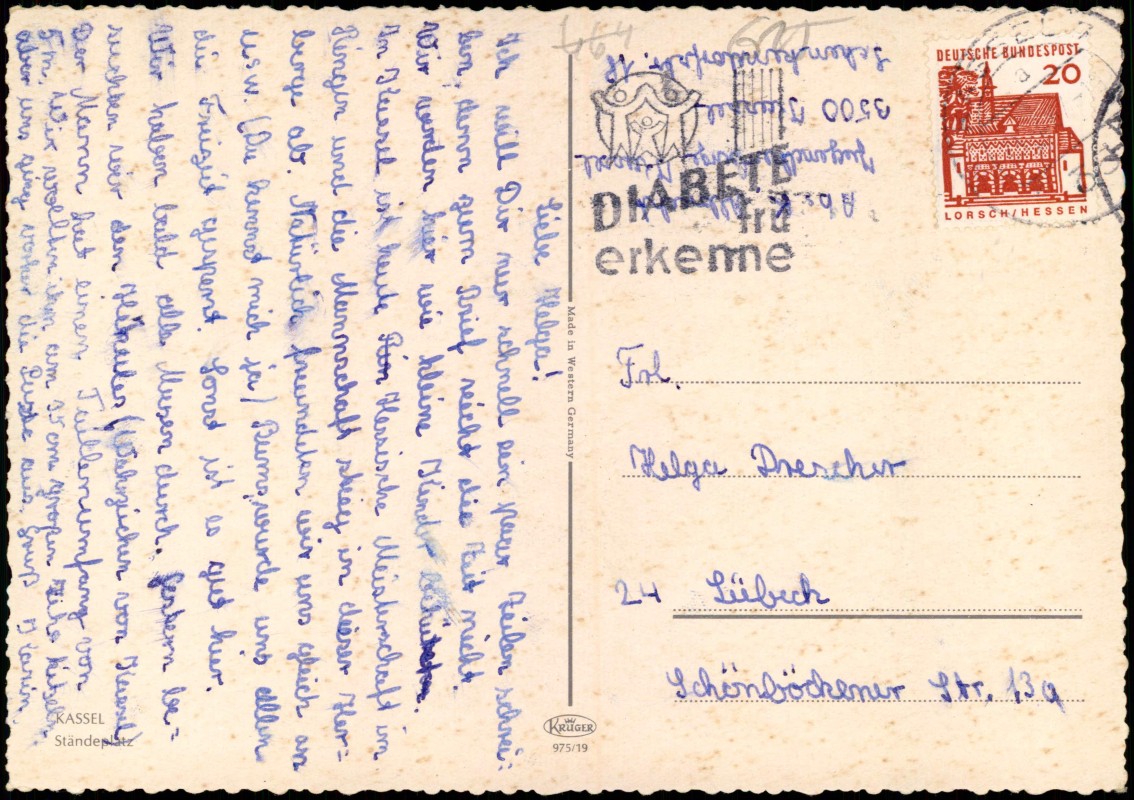 Liebe Helga!
Ich will Dir nur schnell ein paar Zeilen schrei-
ben, denn zum Brief reicht die Zeit nicht.
Wir werden hier wie kleine Kinder behütet.
In Kassel ist heute Hessische Meisterschaft im
Ringen und die Mannschaft stieg in dieser Her-
berge ab. Natürlich freundeten wir uns gleich an
usw. (Du kennst mich ja) Dann wurde uns allen
die Freizeit gesperrt. Sonst ist es gut hier.
Wir haben bald alle Museen durch. Gestern be-
suchten wir den Herkules (Wahrzeichen von Kassel)
Der Mann hat einen Taillenumfang von
wir wollten ihn am großen Zehe kitzeln,
aber uns ging vorher die Puste aus. Gruß Karin
KASSEL
Ständeplatz
Made in Western Germany
KRÜGER
975/19
464
Abs.: K.
Jugendherberge Kassel
3500 Kassel
Schenkendorfstr. 18
DIABETE
frü
erkenne
DEUTSCHE BUNDESPOST
20
LORSCH/HESSEN
Frl.
Helga Drescher
24 Lübeck
Schönböckener Str. 13a